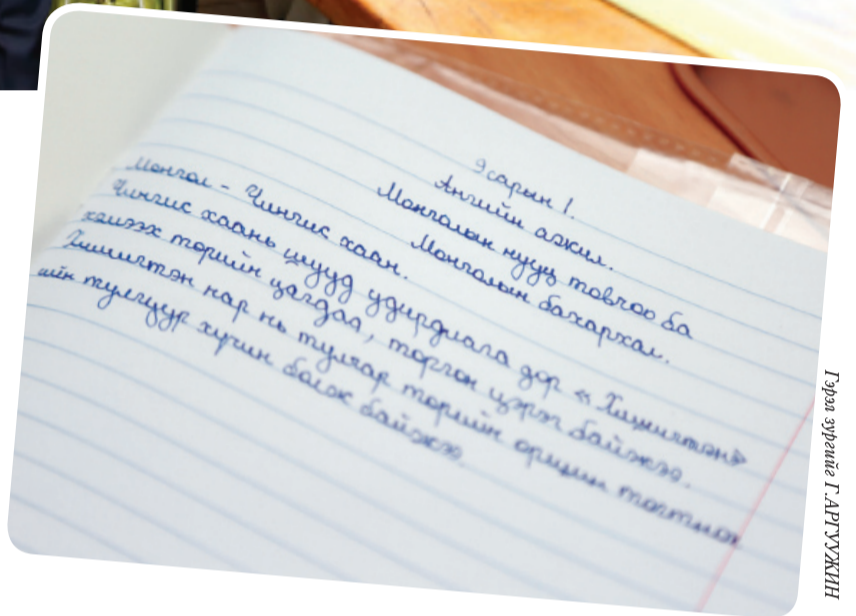 9 сарын 1.
Ангийн ажил.
Монголын нууц товчоо ба
Монголын бахархал.
Монгол - Чингис хаан.
Чингис хааны шууд удирдлага дор «Хишигтэн»
хэмээх төрийн цагдаа, торгон цэрэг байжээ.
Хишигтэн нар нь тулгар төрийн оршин тогтнох
ийн тулгуур хүчин болж байжээ.
Гэрэл зургийг Г.АРГУУЖИН